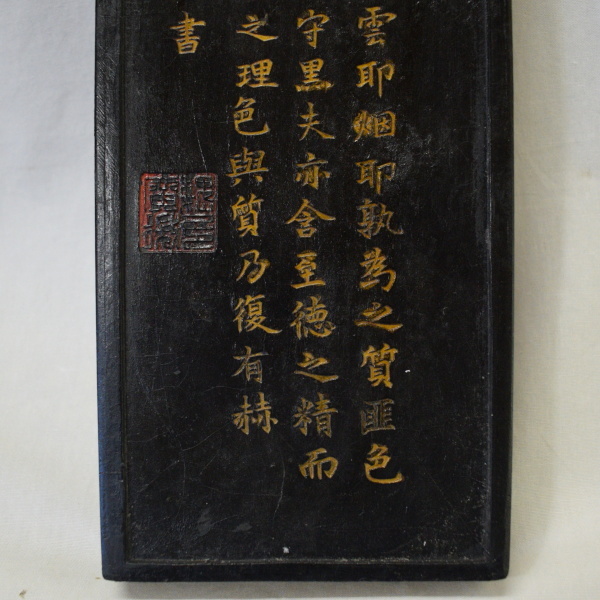 雲耶烟耶孰為之質匪色
守黑夫亦含至德之精而
之理色與質乃復有赫
書